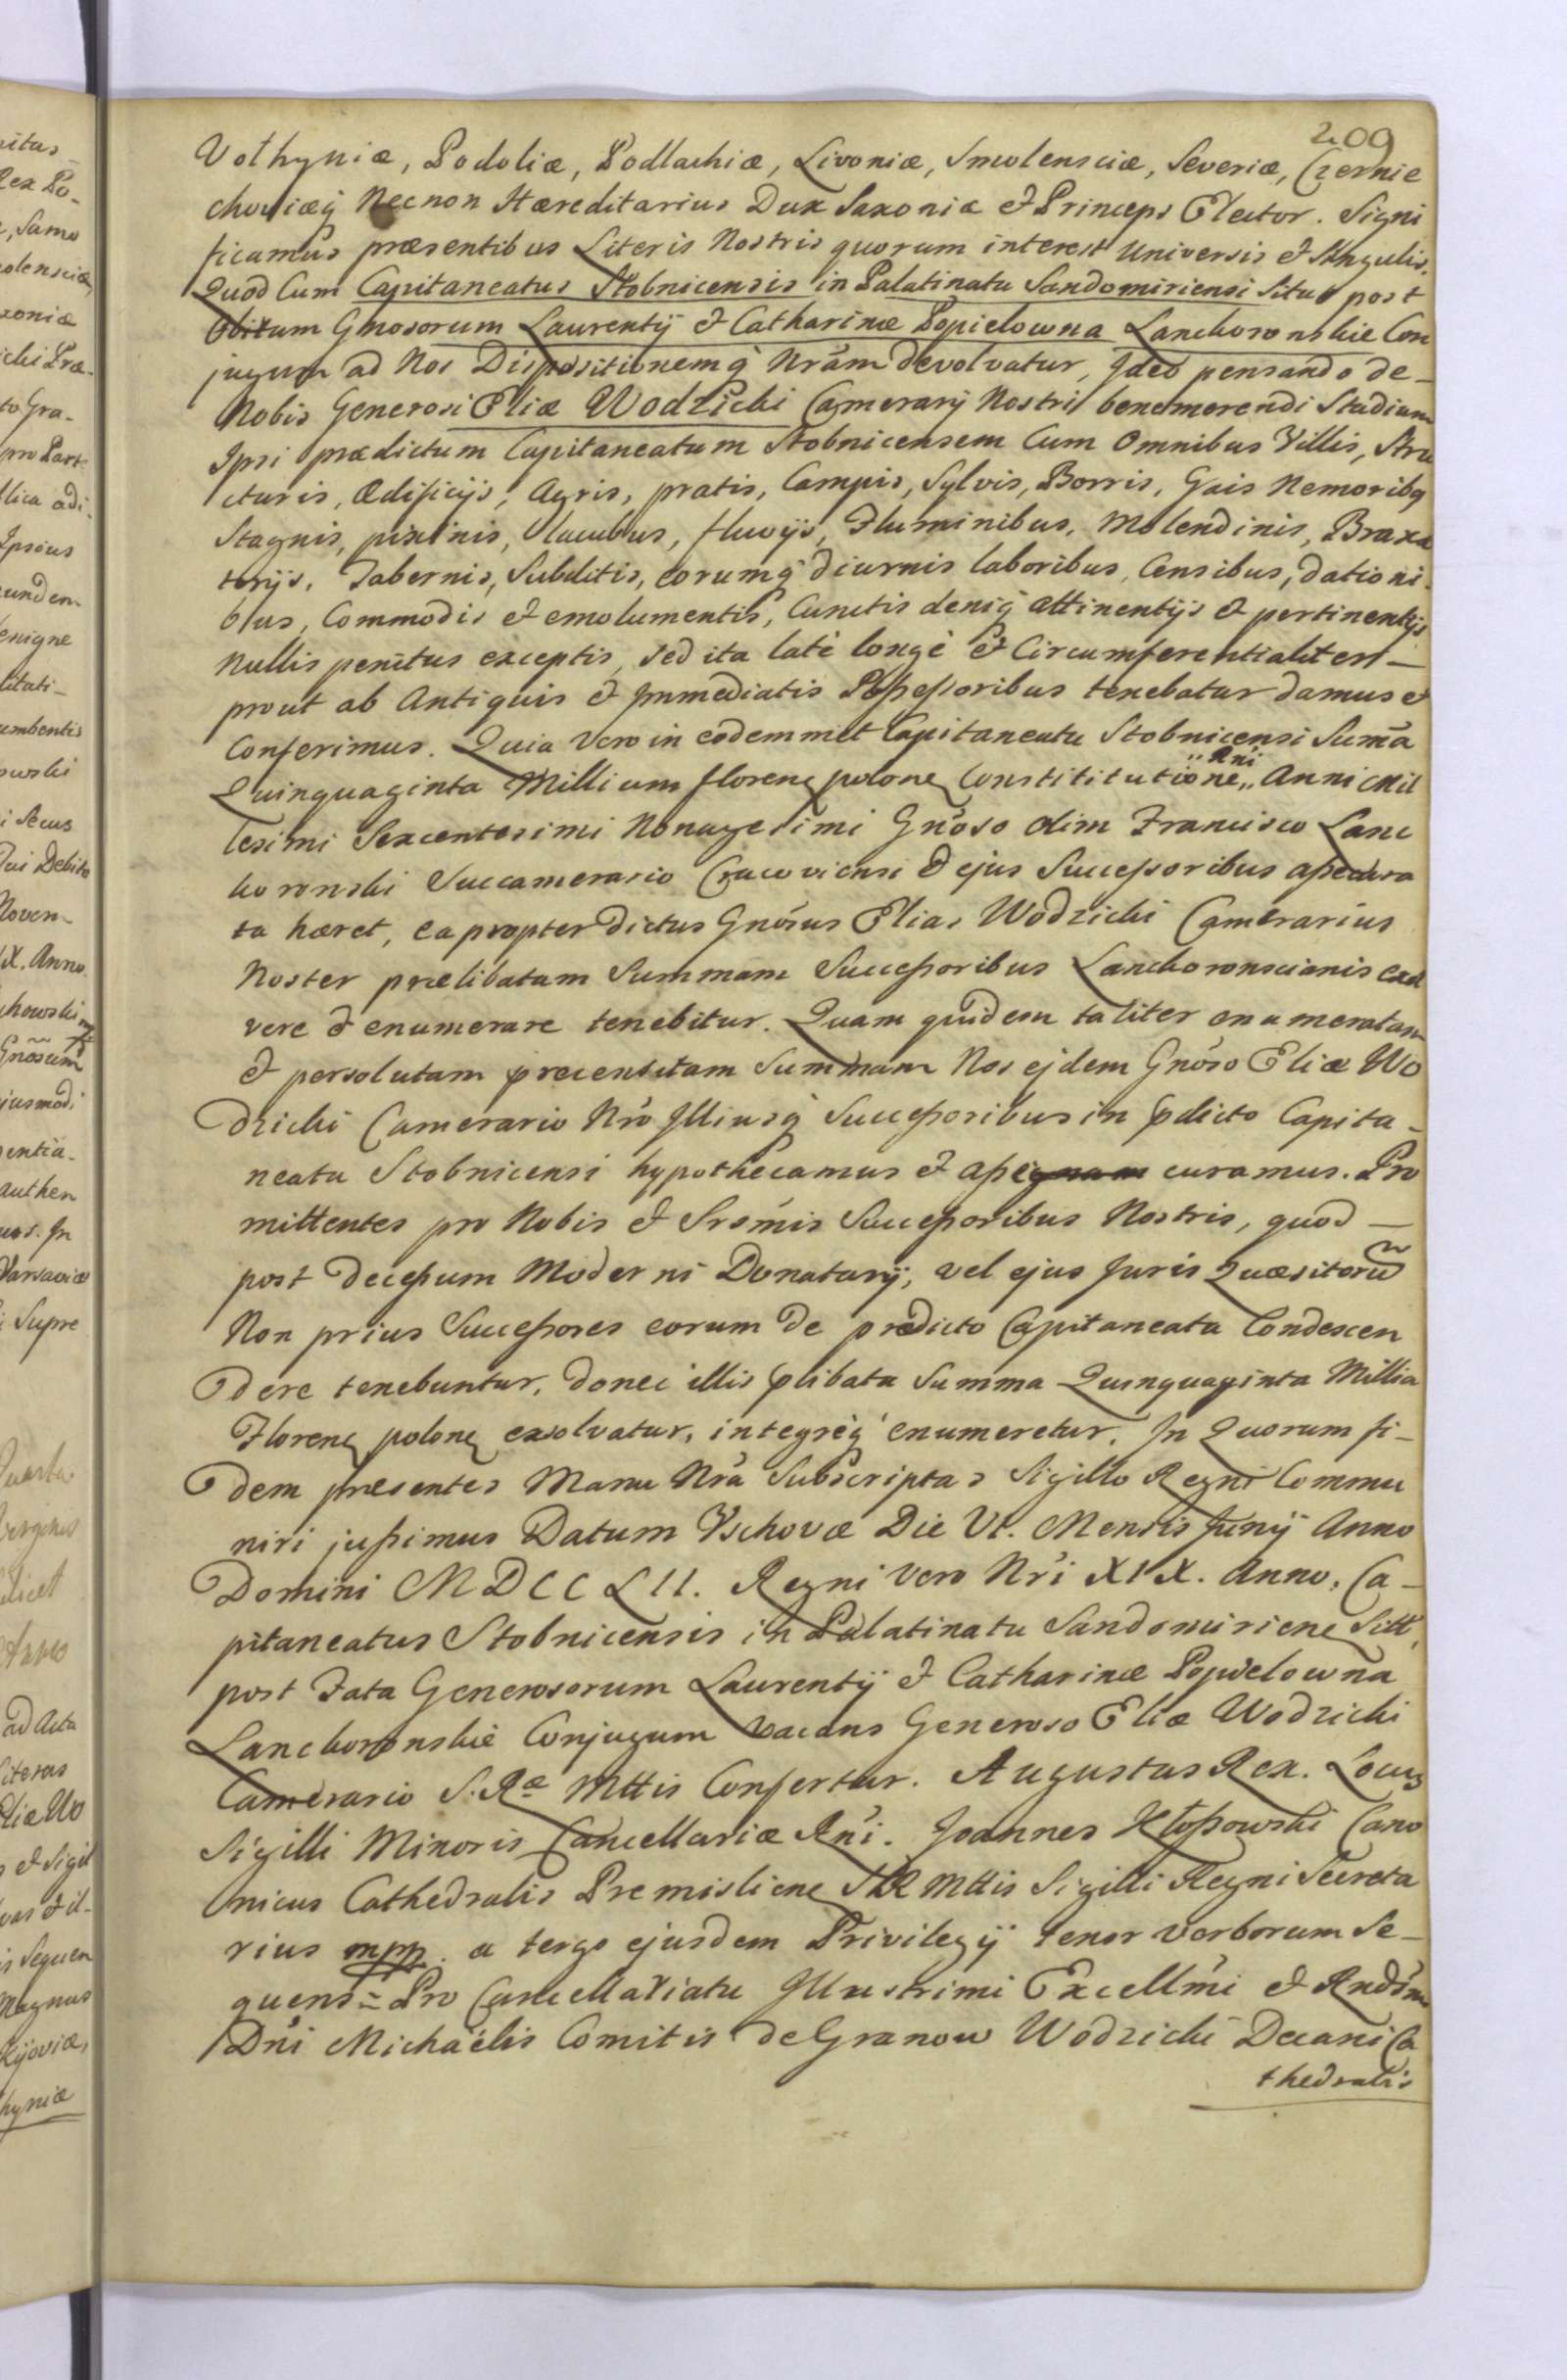 209
Volhyniæ, Podoliæ, Podlachiæ, Livoniæ, Smolensciæ, Severiæ, Czernie
choviæq Necnon Hæreditarius Dux Saxoniæ & Princeps Elector. Signi
ficamus præsentibus Literis Nostris quorum interest Universis & Singulis.
Quod Cum Capitaneatus Stobnicensis in Palatinatu Sandomiriensi Situs post
Obitum Gnosorum Laurentij & Catharinæ Popielowna Lanckoronskie Con
jugum ad Nos Dispositionemq Nram devolvatur, Ideo pensando de-
Nobis Generosi Eliæ Wodzicki Camerarij Nostri benemerendi Studium
Ipsi prædictum Capitaneatum Stobnicensem Cum Omnibus Villis, Stru
cturis, Ædificijs, Agris, pratis, Campis, Sylvis, Borris, Gais Nemoribq
Stagnis, piscinis, lacubus, fluvijs, Fluminibus, Molendinis, Braxa
torijs, Tabernis, Subditis, eorumq diurnis laboribus, Censibus, dationi-
bus, Commodis & emolumentis, Cunctis deniq attinentijs & pertinentijs
Nullis penitus exceptis, sed ita latè longè & Circumferentialiter-
prout ab Antiquis & Immediatis Possessoribus tenebatur damus &
Conferimus. Quia Vero in eodemmet Capitaneatu Stobnicensi Suma
Quinquaginta Millium floren polon Constititutione „Rni„ Anni Mil
lesimi Sexcentesimi Nonagesimi Gnoso olim Francisco Lanc
koronski Succamerario Cracoviensi & ejus Successoribus assecura
ta hæret, ea propter dictus Gnosus Elias Wodzicki Camerarius
Noster prælibatam Summam Successoribus Lanckoronscianis exol
vere & enumerare tenebitur. Quam quidem taliter enumeratam
& persolutam præcensitam Summam Nos ejdem Gnoso Eliæ Wo
dzicki Camerario Nro Illiusq Successoribus in pdicto Capita-
neatu Stobnicensi hypothecamus & asseguram curamus. Pro
mittentes pro Nobis & Srsmis Successoribus Nostris, quod-
post decessum Moderni Donatarij, vel ejus Juris Quæsitorũ
Non prius Successores eorum de prædicto Capitaneatu Condescen
dere tenebuntur, donec illis plibata Summa Quinquaginta Millia
Floren polon exsolvatur, integreq enumeretur. In Quorum fi-
dem præsentes Manu Nra Subscriptas Sigillo Regni Commu
niri jussimus Datum Vschovæ Die VI. Mensis Junij Anno
Domini MDCCLII. Regni Vero Nri XIX. Anno. Ca-
pitaneatus Stobnicensis in Palatinatu Sandomirien Sitt,
post Fata Generosorum Laurentij & Catharinæ Popielowna
Lanckoronskie Conjugum vacans Generoso Eliæ Wodzicki
Camerario S. Ræ Mttis Confertur. Augustus Rex. Locus
Sigilli Minoris Cancellariæ Rni. Joannes Kłossowski Cano
nicus Cathedralis Premislien SR Mttis Sigilli Regni Secreta
rius mpp. a tergo ejusdem Privilegij tenor verborum Se-
quens = Pro Cancellariatu Illustrimi Excellmi & Rndsmi
Dni Michaëlis Comitis de Granow Wodzicki Decani Ca
thedralis